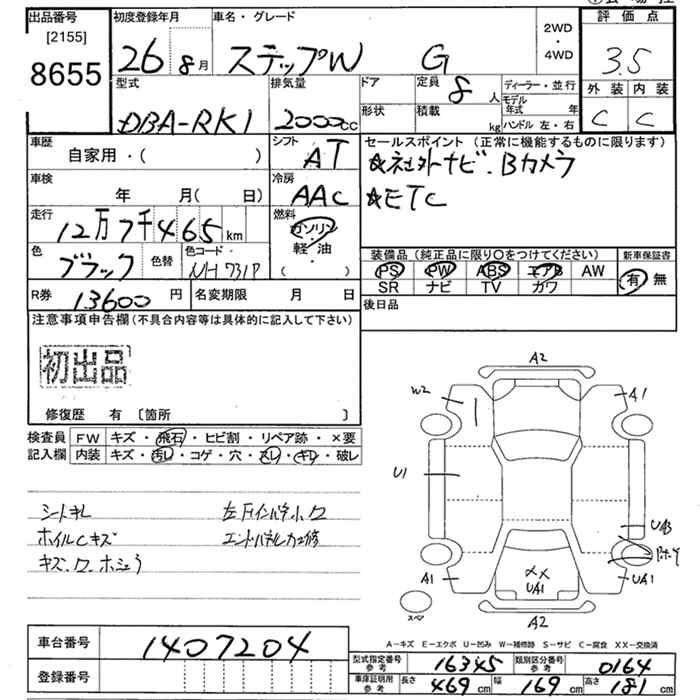 出品番号 初度登録年月 車名・グレード 2WD・4WD 評価点
[2155]
8655 26 8月 ステップW G 3.5
型式 排気量 ドア 定員 8人 ディーラー・並行 外装 内装
DBA-RK1 2000cc 形状 積載 kg モデル年式 年 ハンドル 左・右 C C
車歴 自家用・( ) シフト AT セールスポイント (正常に機能するものに限ります)
車検 年 月( 日) 冷房 AAC ☆社外ナビ・Bカメラ
走行 12万7千465km 燃料 ガソリン 軽・油 ( ) ☆ETC
色 ブラック 色替 色コード NH731P 装備品 (純正品に限り○をつけてください) 新車保証書
PS PW ABS エアB AW 有 無
R券 13600円 名変期限 月 日 SR ナビ TV カワ
注意事項申告欄(不具合内容等は具体的に記入して下さい) 後日品
初出品
修復歴 有 〔箇所 〕
検査員 FW キズ・飛石・ヒビ割・リペア跡・×要
記入欄 内装 キズ・汚レ・コゲ・穴・スレ・キレ・破レ
シートキレ
ホイルCキズ エンドパネルカエ修
A2
W2 A1
U1
UA3
A1 XX UA1 UA1
スペア A2
A-キズ E-エクボ U-凹み W-補修跡 S-サビ C-腐食 XX-交換済
車台番号 1407204 型式指定番号 参考 16345 類別区分番号 参考 0164
登録番号 車庫証明用 参考 長さ 469cm 幅 169cm 高さ 181cm